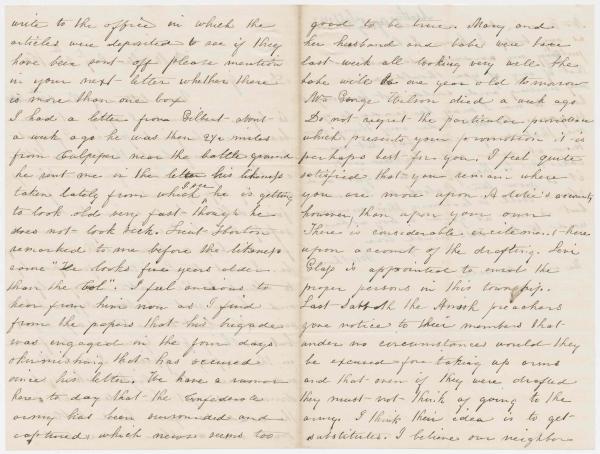 write to the office in which the
articles were deposited to see if they
have been sent off please mention
in your next letter whether there
is more than one box
I had a letter from Gilbert about
a week ago he was then 2½ miles
from Culpeper near the battle ground
he sent me in the letter his likeness
taken lately from which I see he is getting
to look old very fast though he
does not look sick. Lieut Horton
remarked to me before the likeness
came "He looks five years older
than the Col". I feel anxious to
hear from him now as I find
from the papers that his brigade
was engaged in the four days
skirmishing that has occured
since his letter. We have a rumor
here to day that the Confederate
army has been surrounded and
captured which news seems too
good to be true. Mary and
her husband and babe were here
last week all looking very well the
babe will be one year old tomorrow
Mrs George Wilson died a week ago
Do not regret the particular providence
which prevents your promotion it is
perhaps best for you. I feel quite
satisfied that you remain where
you are more upon Adelie's account
however, than upon your own
There is considerable excitement here
upon account of the drafting. Levi
is appointed to enroll the
proper persons in this township.
Last Sabbath the Amish preachers
gave notice to their members that
under no circumstance would they
be excused for taking up arms
and that even if they were drafted
they must not think of going to the
army. I think their idea is to get
substitutes. I believe our neighbor